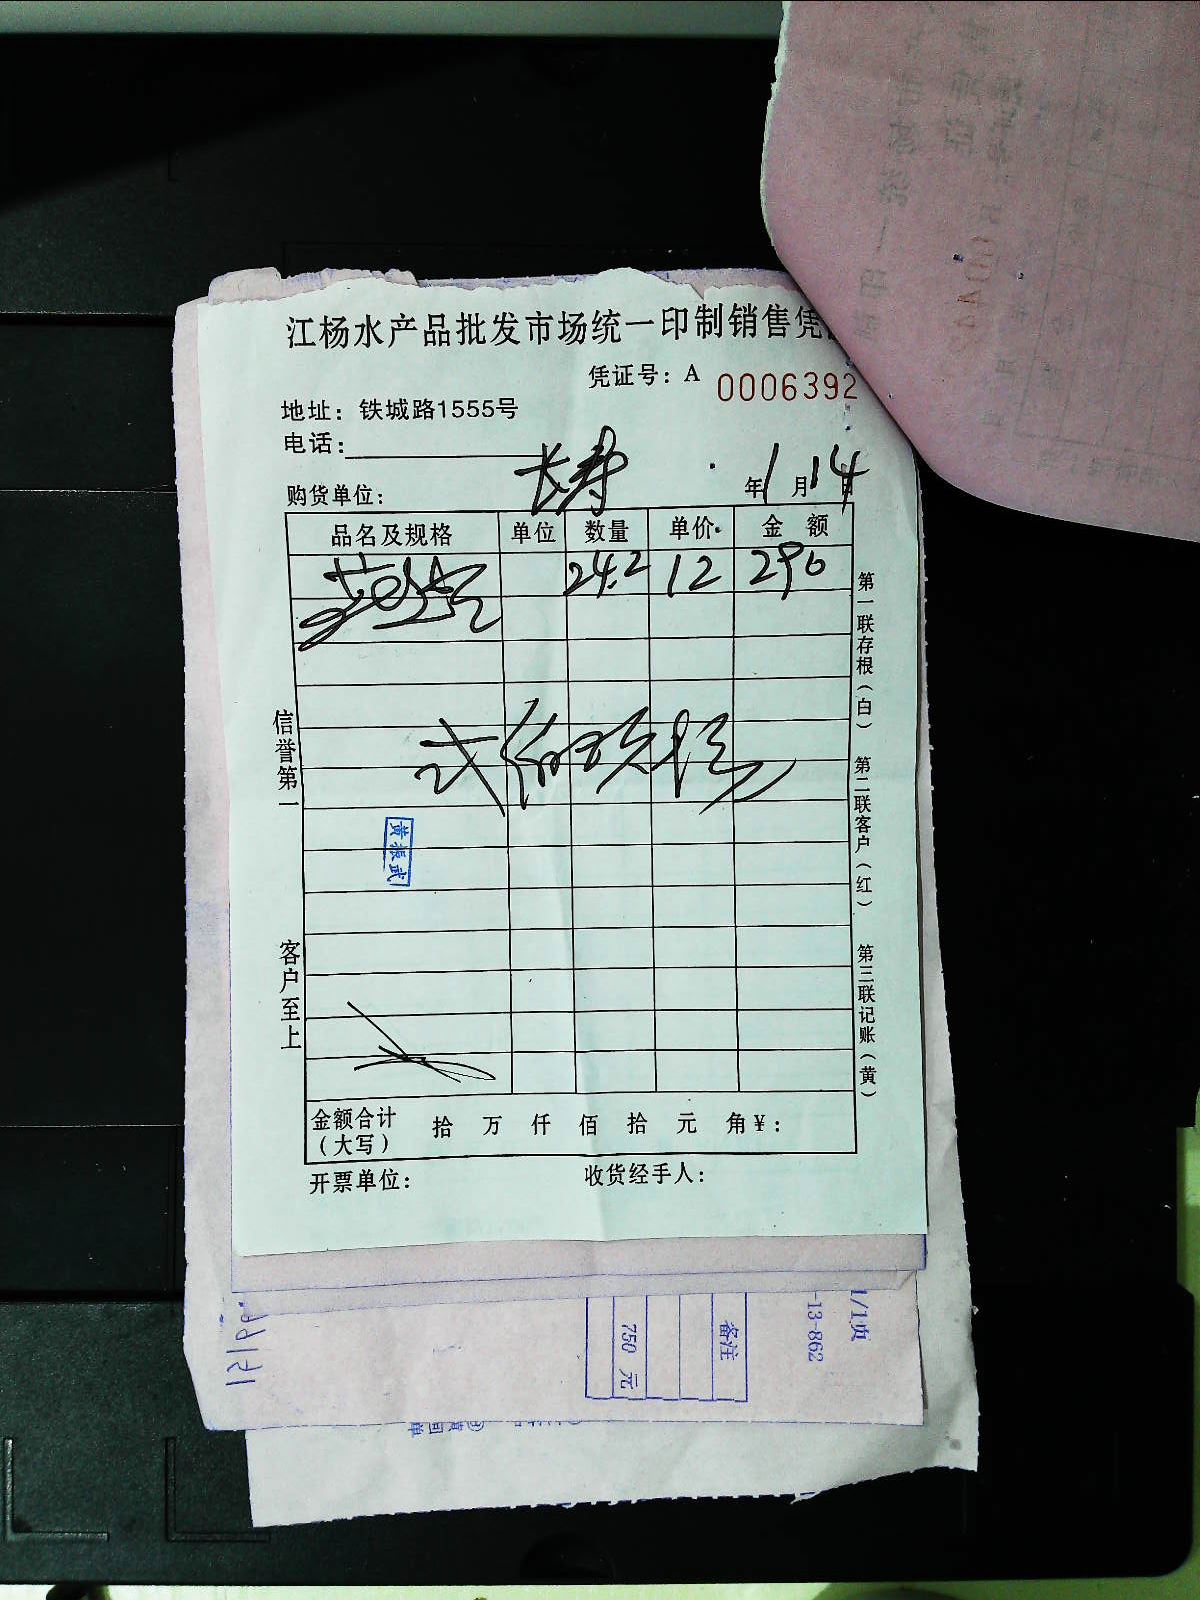 江杨水产品批发市场统一印制销售凭
凭证号：A 0006392
地址：铁城路1555号
电话：
长寿
购货单位： 年1月14日
品名及规格 单位 数量 单价 金额
24.2 12 290
第一联存根（白） 第二联客户（红） 第三联记账（黄）
信誉第一
客户至上
黄振武
金额合计（大写） 拾 万 仟 佰 拾 元 角¥：
开票单位： 收货经手人：
1/1页
-13-862
备注
750 元